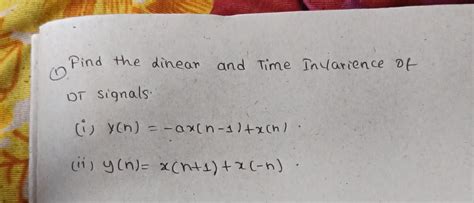 ① Pind the dinear and Time Invarience of
DT signals.
(i) y(n) = -ax(n-1)+x(n).
(ii) y(n)= x(n+1)+x(-n).